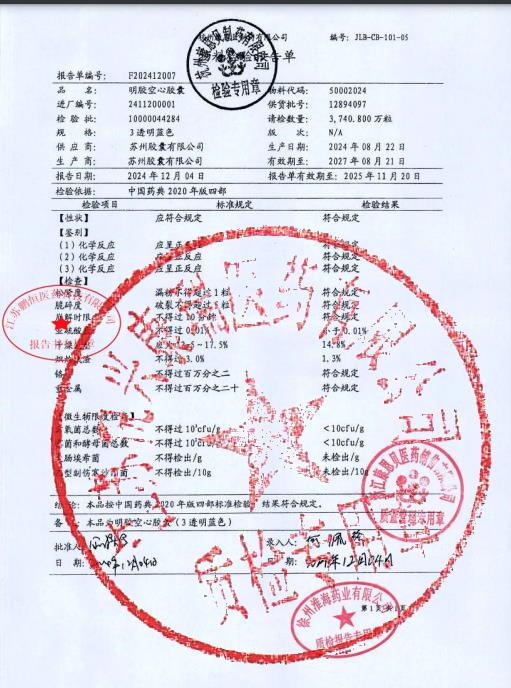 编号: JLB-CB-101-05
检验专用章
报告单编号: F202412007
品 名: 明胶空心胶囊 物料代码: 50002024
进厂编号: 2411200001 供货批号: 12894097
检 验 批: 10000044284 请检数量: 3,740.800万粒
规 格: 3透明蓝色 版 次: N/A
供 应 商: 苏州胶囊有限公司 生产日期: 2024年08月22日
生 产 商: 苏州胶囊有限公司 有效期至: 2027年08月21日
报告日期: 2024年12月04日 报告单有效期至: 2025年11月20日
检验依据: 中国药典2020年版四部
检验项目 标准规定 检验结果
【性状】 应符合规定 符合规定
【鉴别】
(1)化学反应 应呈正反应 符合规定
(2)化学反应 应呈正反应 符合规定
(3)化学反应 应呈正反应 符合规定
【检查】
松紧度 漏粉不得超过1粒 符合规定
脆碎度 破裂不得超过5粒 符合规定
崩解时限 不得过10分钟 符合规定
亚硫酸盐 不得过0.01% 小于0.01%
干燥失重 应为12.5~17.5% 14.8%
炽灼残渣 不得过3.0% 1.3%
铬 不得过百万分之二 符合规定
重金属 不得过百万分之二十 符合规定
【微生物限度检查】
需氧菌总数 不得过10³cfu/g <10cfu/g
霉菌和酵母菌总数 不得过10²cfu/g <10cfu/g
大肠埃希菌 不得检出/g 未检出/g
沙型制伤寒沙门菌 不得检出/10g 未检出/10g
结论: 本品按中国药典2020年版四部标准检验, 结果符合规定。
备 注: 本品为明胶空心胶囊(3透明蓝色)
批准人: 录入人:
日 期: 日 期: 12月04日
第1页/共1页
江苏鹏恒医药
报告单专用章
质量管理专用章
徐州淮海药业有限公司
质检报告专用章